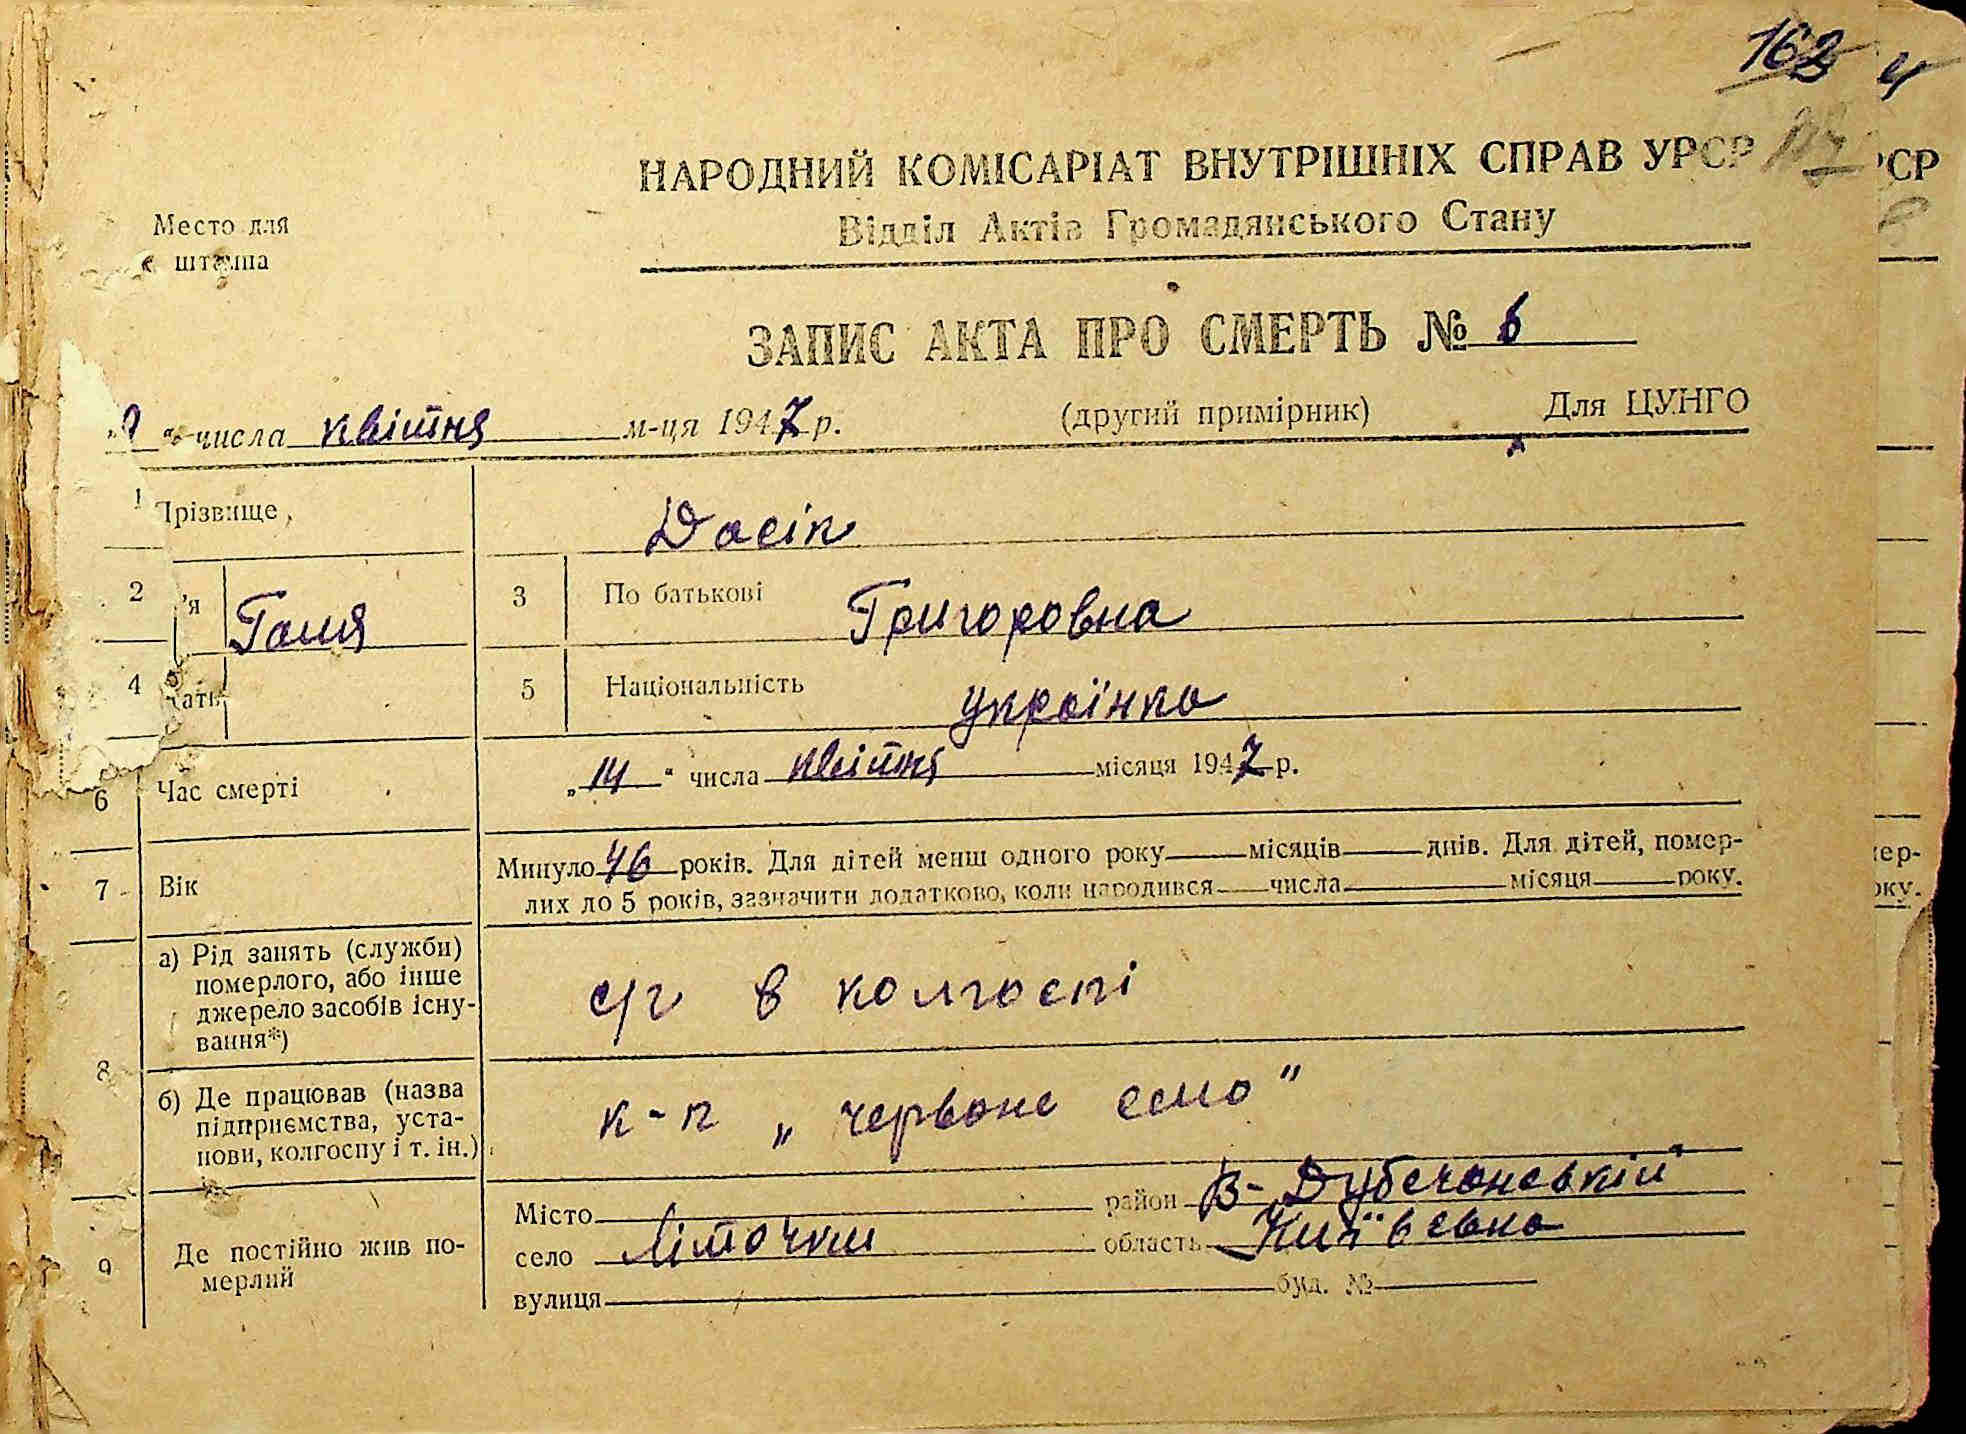 163
НАРОДНИЙ КОМІСАРІАТ ВНУТРІШНІХ СПРАВ УРСР
РСР
Відділ Актів Громадянського Стану
Место для
штампа
ЗАПИС АКТА ПРО СМЕРТЬ № 6
числа квітня м-ця 1947 р. (другий примірник) Для ЦУНГО
1 Прізвище Дасік
2 'я Галя 3 По батькові Григоровна
4 ать 5 Національність українка
6 Час смерті „14" числа квітня місяця 1947 р.
7 Вік Минуло 46 років. Для дітей менш одного року місяців днів. Для дітей, помер-
лих до 5 років, зазначити додатково, коли народився числа місяця року.
8 а) Рід занять (служби) померлого, або інше джерело засобів існування*) с/г в колгоспі
б) Де працював (назва підприємства, установи, колгоспу і т. ін.) к-п „червоне село"
9 Де постійно жив померлий Місто район В-Дубечанський
село Літочки область Київська
вулиця буд. №